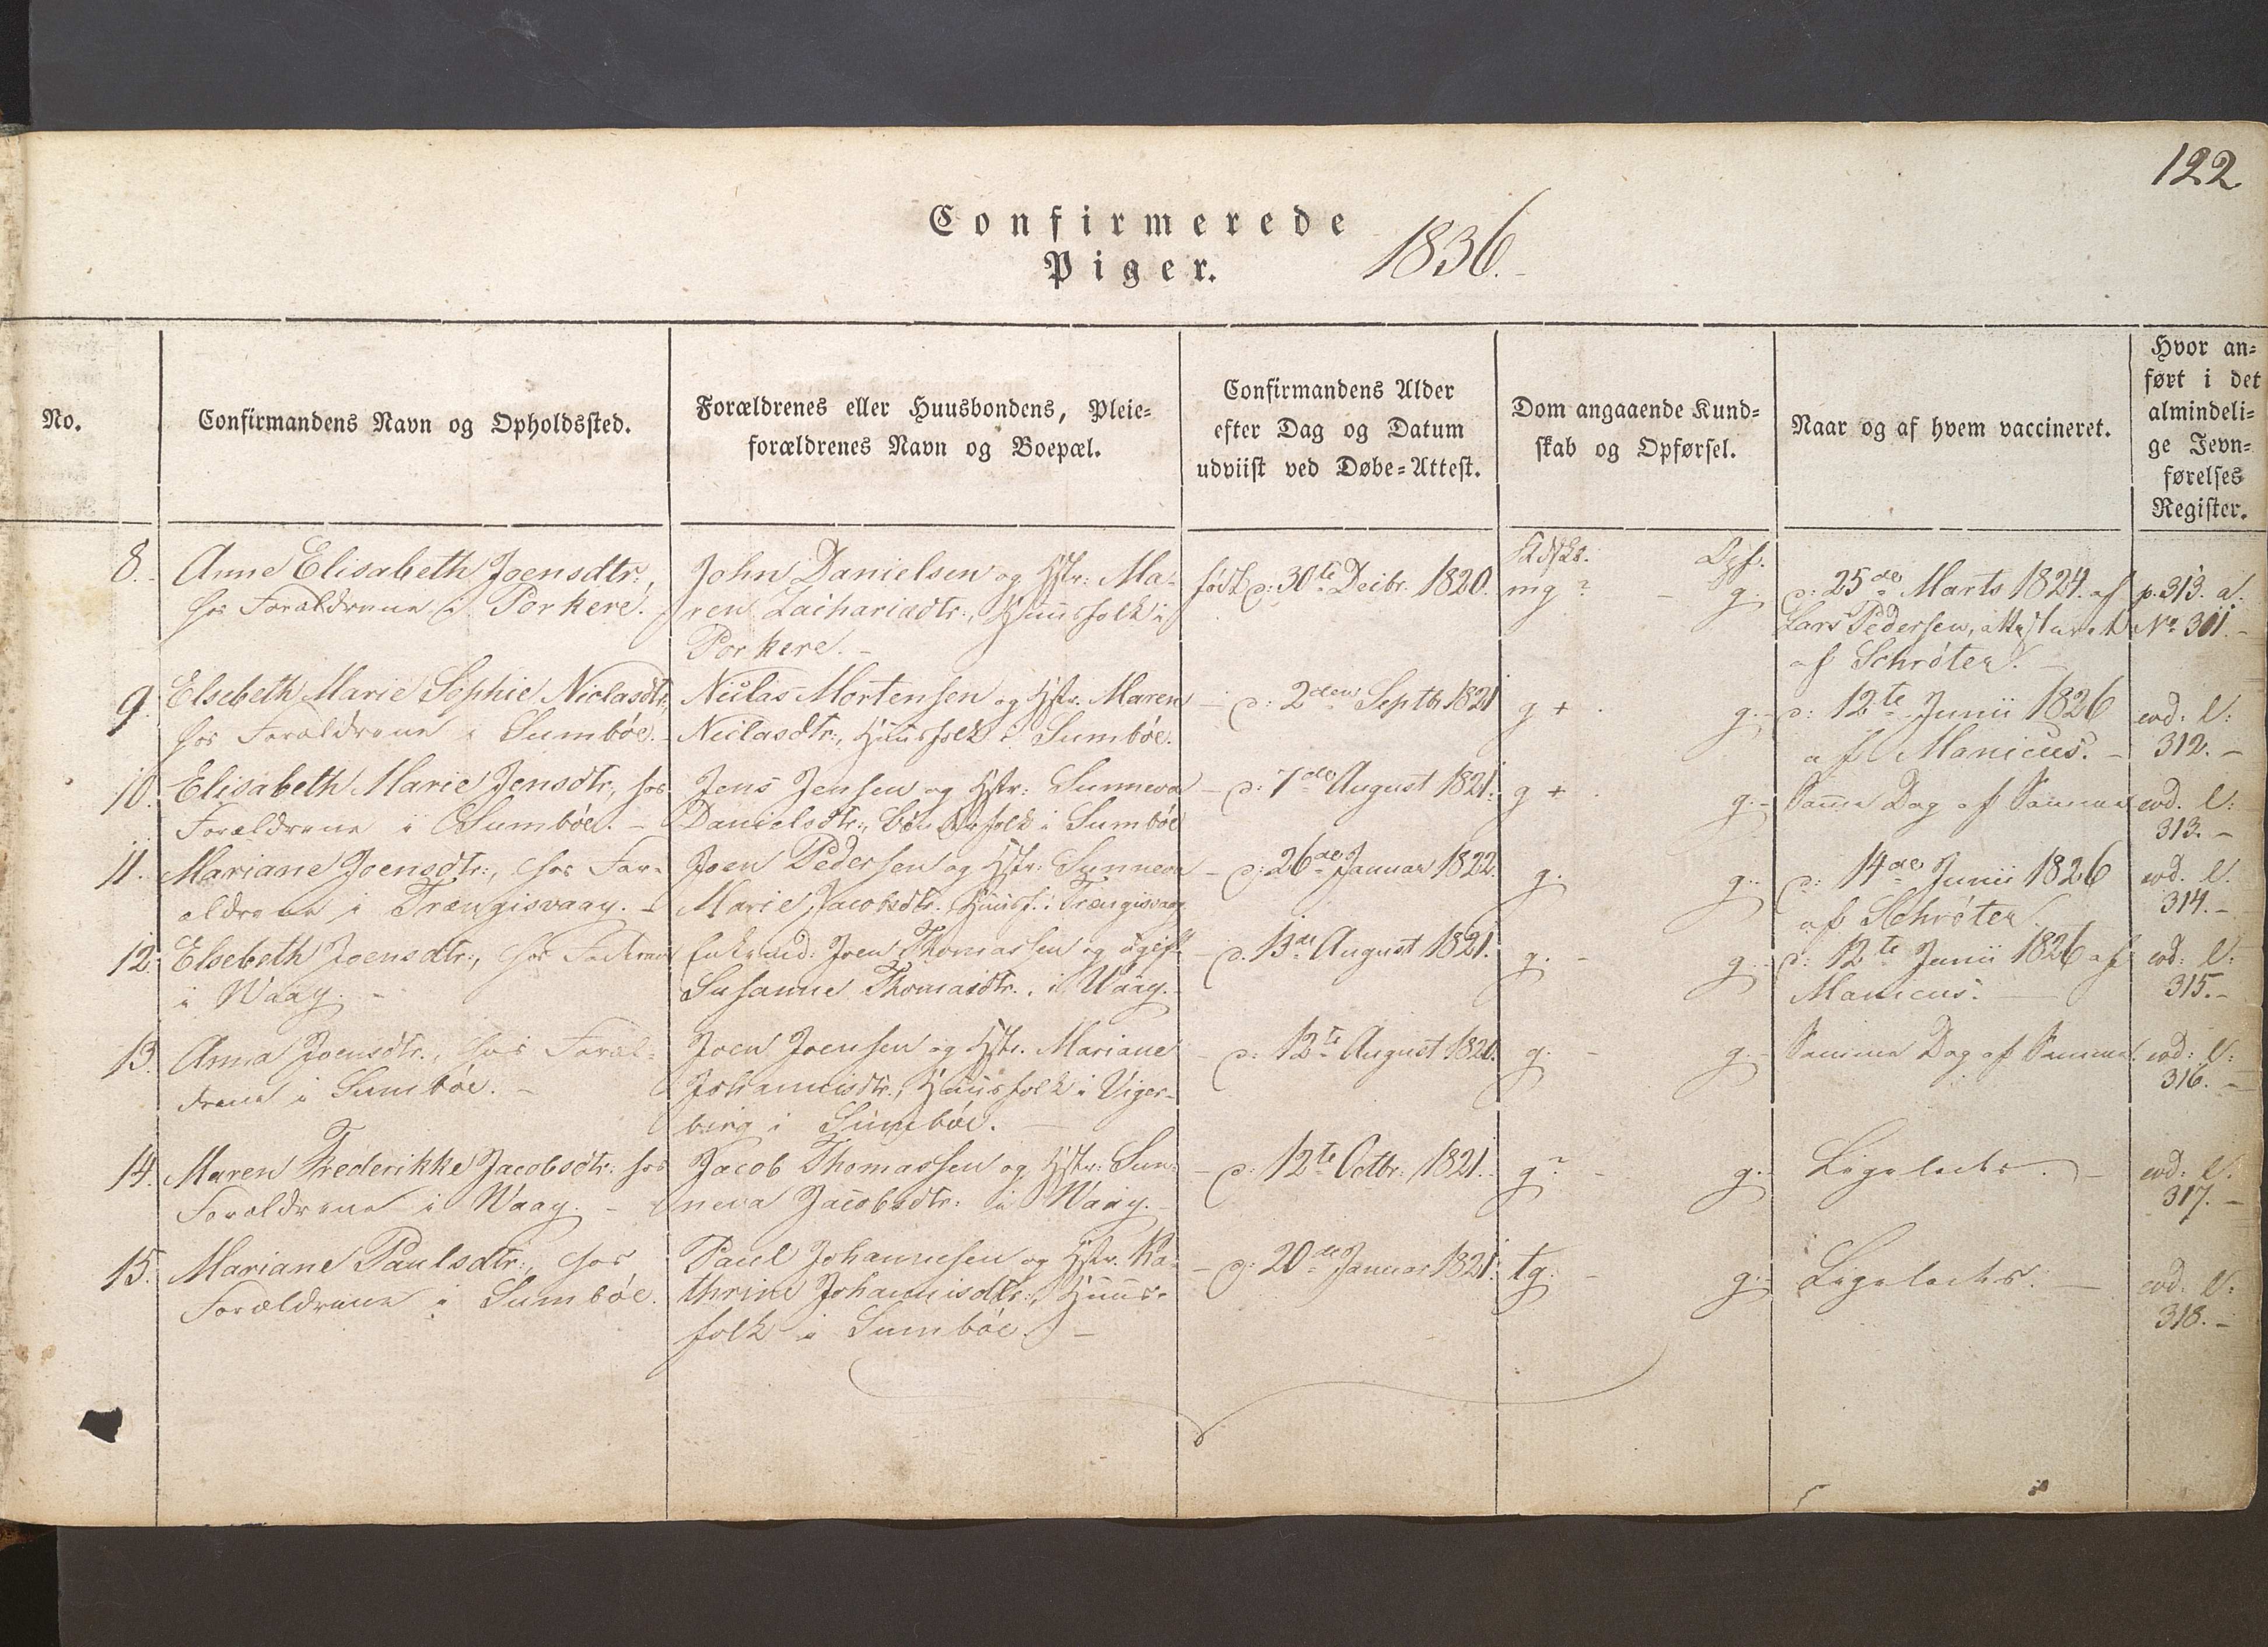 122
Confirmerede
Piger.
1836.
No.
Confirmandens Navn og Opholdssted.
Forældrenes eller Huusbondens, Pleie=
forældrenes Navn og Boepæl.
Confirmandens Alder
efter Dag og Datum
udviist ved Døbe=Attest.
Dom angaaende Kund=
skab og Opførsel.
Naar og af hvem vaccineret.
Hvor an=
ført i det
almindeli=
ge Jevn=
førelses
Register.
8.
Anne Elisabeth Joensdtr:,
hos Forældrene i Porkere.
John Danielsen og Hstr: Ma-
ren Zachariadtr:, Huusfolk i
Porkere.
født d: 30te Decbr. 1820.
Kdsk. Opf.
mg? - g.
d: 25de Marts 1824. af
Lars Pedersen, attesteret
af Schrøter.
p. 313. a.
No 311.
9.
Elsebeth Marie Sophie Niclasdtr.
hos Forældrene i Sumbøe.
Niclas Mortensen og Hstr. Maren
Niclasdtr:, Huusfolk i Sumbøe.
- d: 2den Septbr 1821
g + . g.
d: 12te Junii 1826
af Manicus.
eod. l:
312.
10.
Elisabeth Marie Jensdtr, hos
Forældrene i Sumbøe.
Jens Jensen og Hstr: Sunneva
Danielsdtr:, i Sumbøe
- d: 7de August 1821.
g + . g.
Samme Dag af Samme
eod. l:
313.
11.
Mariane Joensdtr:, hos For-
ældrene i Trængisvaag.
Joen Pedersen og Hstr: Sunneva
Marie Jacobsdtr. Huusf. i Trængisvaag
- d: 26de Januar 1822.
g. g.
d: 14de Junii 1826
af Schrøter
eod. l.
314.
12.
Elsebeth Joensdtr:, hos Faderen
i Waag.
Enkemd: Joen Thomassen og ugift
Susanne Thomasdtr. i Waag.
- d. 13de August 1821.
g. - g.
d: 12te Junii 1826 af
Manicus.
eod: l:
315.
13.
Anna Joensdtr., hos Foræl-
drene i Sumbøe.
Joen Joensen og Hstr. Mariane
Johannisdtr., Huusfolk i Viger-
birg i Sumbøe.
- d: 12te August 1821.
g. - g.
Samme Dag af Samme.
eod: l:
316.
14.
Maren Frederikke Jacobsdtr: hos
Forældrene i Waag.
Jacob Thomassen og Hstr: Sun-
neva Jacobsdtr: i Waag.
- d: 12te Octbr: 1821.
g? - g.
Ligeledes.
eod: l:
317.
15.
Mariane Paulsdtr:, hos
Forældrene i Sumbøe.
Paul Johannesen og Hstr. Ka-
thrine Johannisdtr:, Huus-
folk i Sumbøe.
- d: 20de Januar 1821.
tg. - g.
Ligeledes.
eod. l:
318.